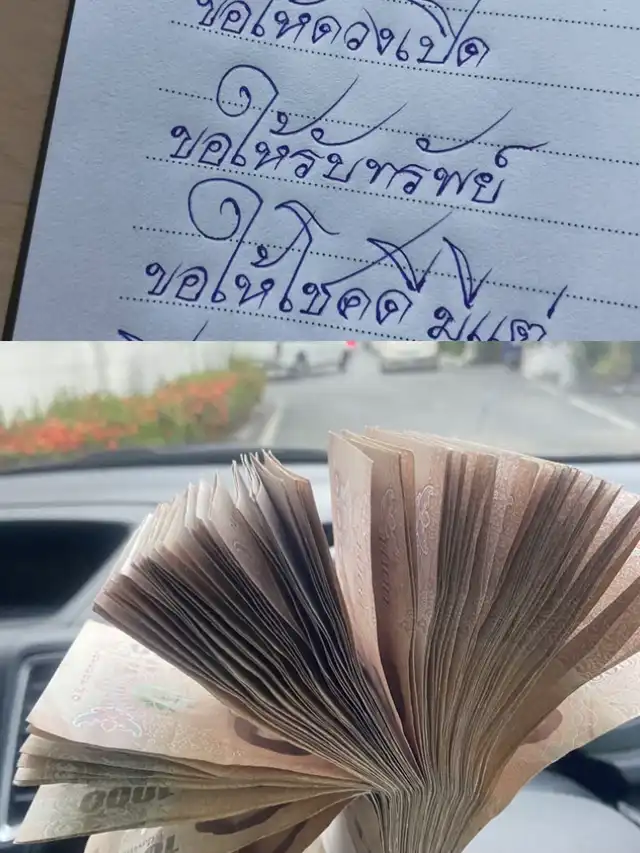 ขอให้ดวงเปิด
ขอให้รับทรัพย์
ขอให้โชคดี มีแต่
1000